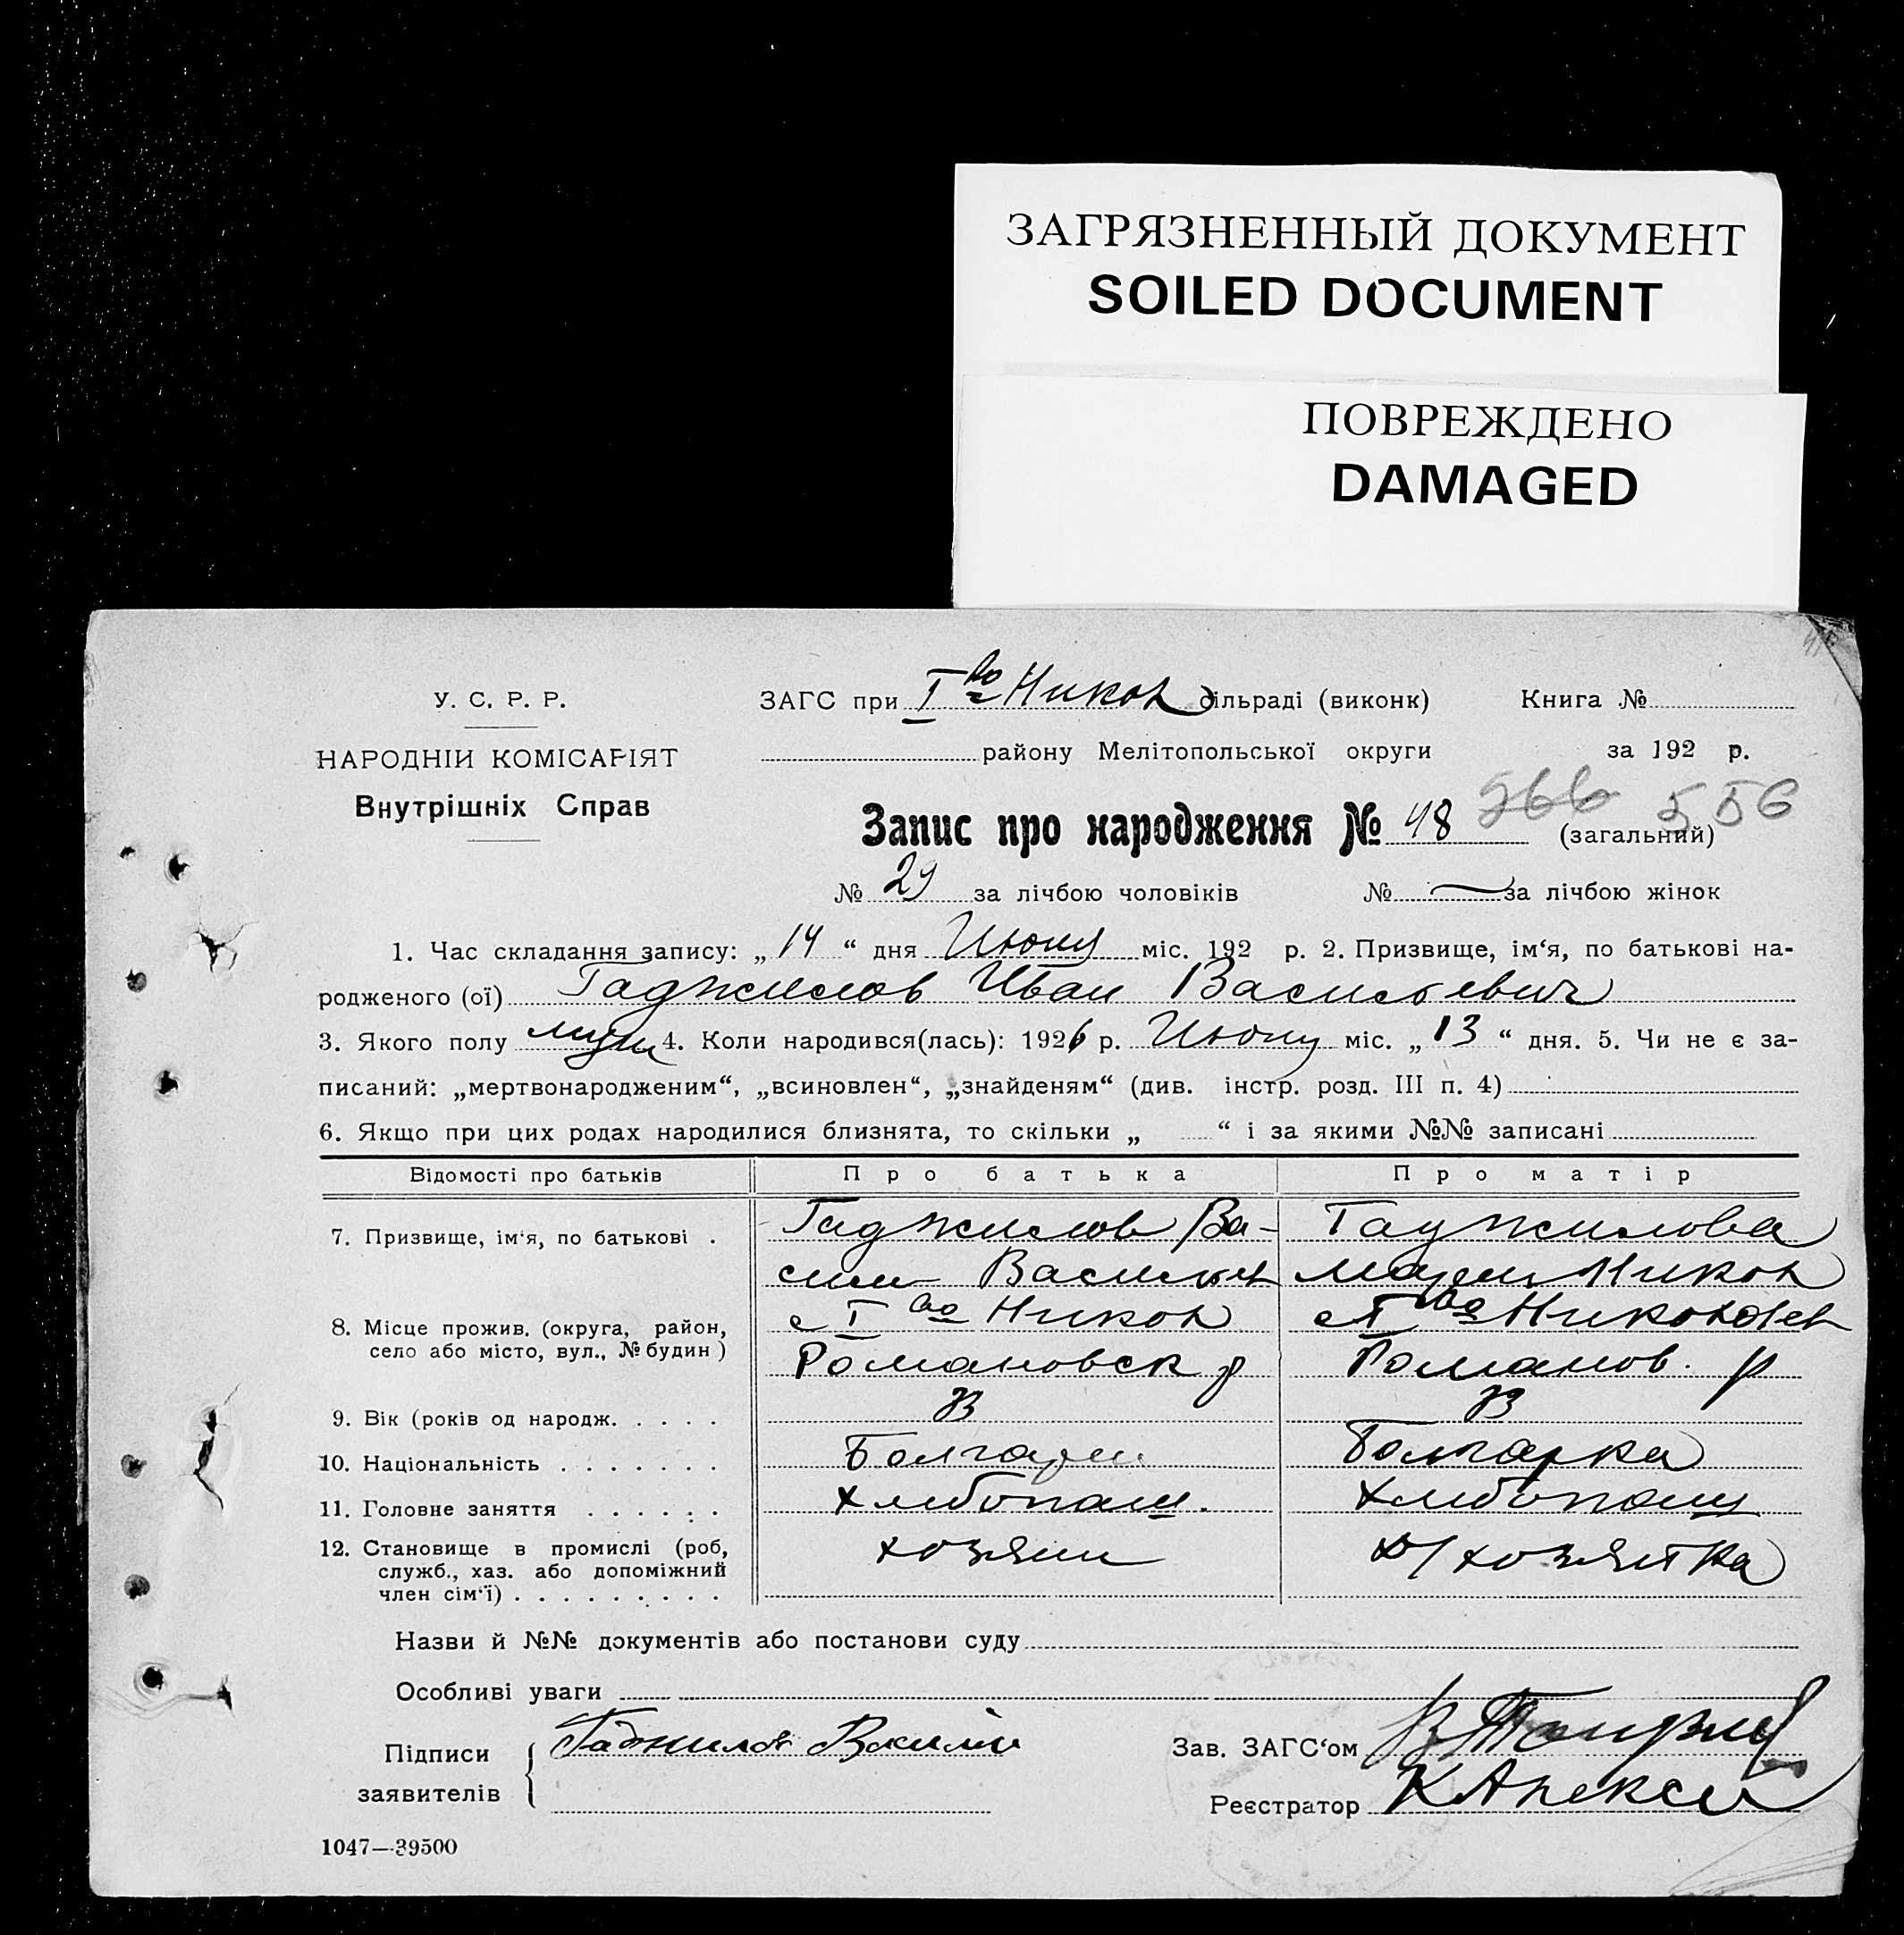 ЗАГРЯЗНЕННЫЙ ДОКУМЕНТ
SOILED DOCUMENT
ПОВРЕЖДЕНО
DAMAGED
У. С. Р. Р.
НАРОДНІЙ КОМІСАРІЯТ
Внутрішніх Справ
ЗАГС при I во Никол сільраді (виконк) Книга №
району Мелітопольської округи за 192 р.
Запис про народження № 48 566 556 (загальний)
№ 29 за лічбою чоловіків № — за лічбою жінок
1. Час складання запису: „14“ дня Июня міс. 192 р. 2. Призвище, ім‘я, по батькові на-
родженого (ої) Гаджилов Иван Васильевич
3. Якого полу муж 4. Коли народився(лась): 1926 р. Июня міс. „13“ дня. 5. Чи не є за-
писаний: „мертвонародженим“, „всиновлен“, „знайденям“ (див. інстр. розд. III п. 4)
6. Якщо при цих родах народилися близнята, то скільки „ “ і за якими №№ записані
Відомості про батьків Про батька Про матір
7. Призвище, ім‘я, по батькові . Гаджилов Ва- Гаджилова
сили Васильев Мария Никол
8. Місце прожив. (округа, район, с I во Никол с I во Николаев
село або місто, вул., № будин) Романовск р Романов. р
9. Вік (років од народж. . . . .
10. Національність . . . . . . . Болгарин Болгарка
11. Головне заняття . . . . . . Хлибопаш. Хлибопаш
12. Становище в промислі (роб, хозяин д/хозяйка
служб., хаз. або допоміжний
член сім‘ї) . . . . . . . . .
Назви й №№ документів або постанови суду
Особливі уваги
Підписи Гаджилов Василий Зав. ЗАГС‘ом
заявителів Реєстратор К Алексе
1047—39500